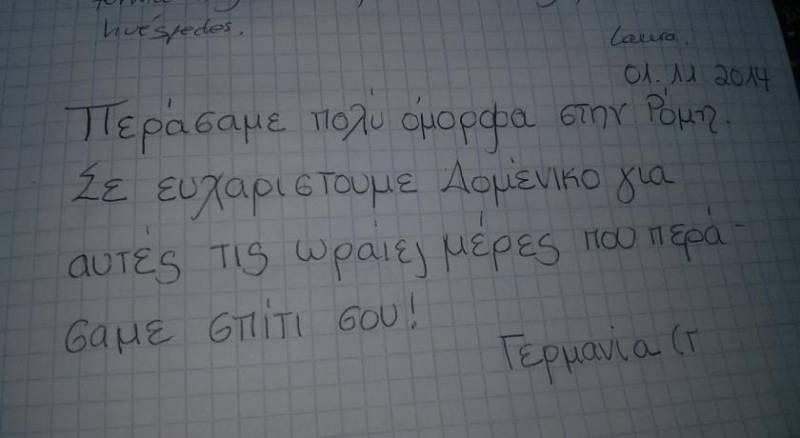 huéspedes.
Laura.
01.11 2014
Περάσαμε πολύ όμορφα στην Ρόμη.
Σε ευχαριστουμε Δομένικο για
αυτές τις ωραίες μέρες που περά-
σαμε σπίτι σου!
Γερμανία (τ